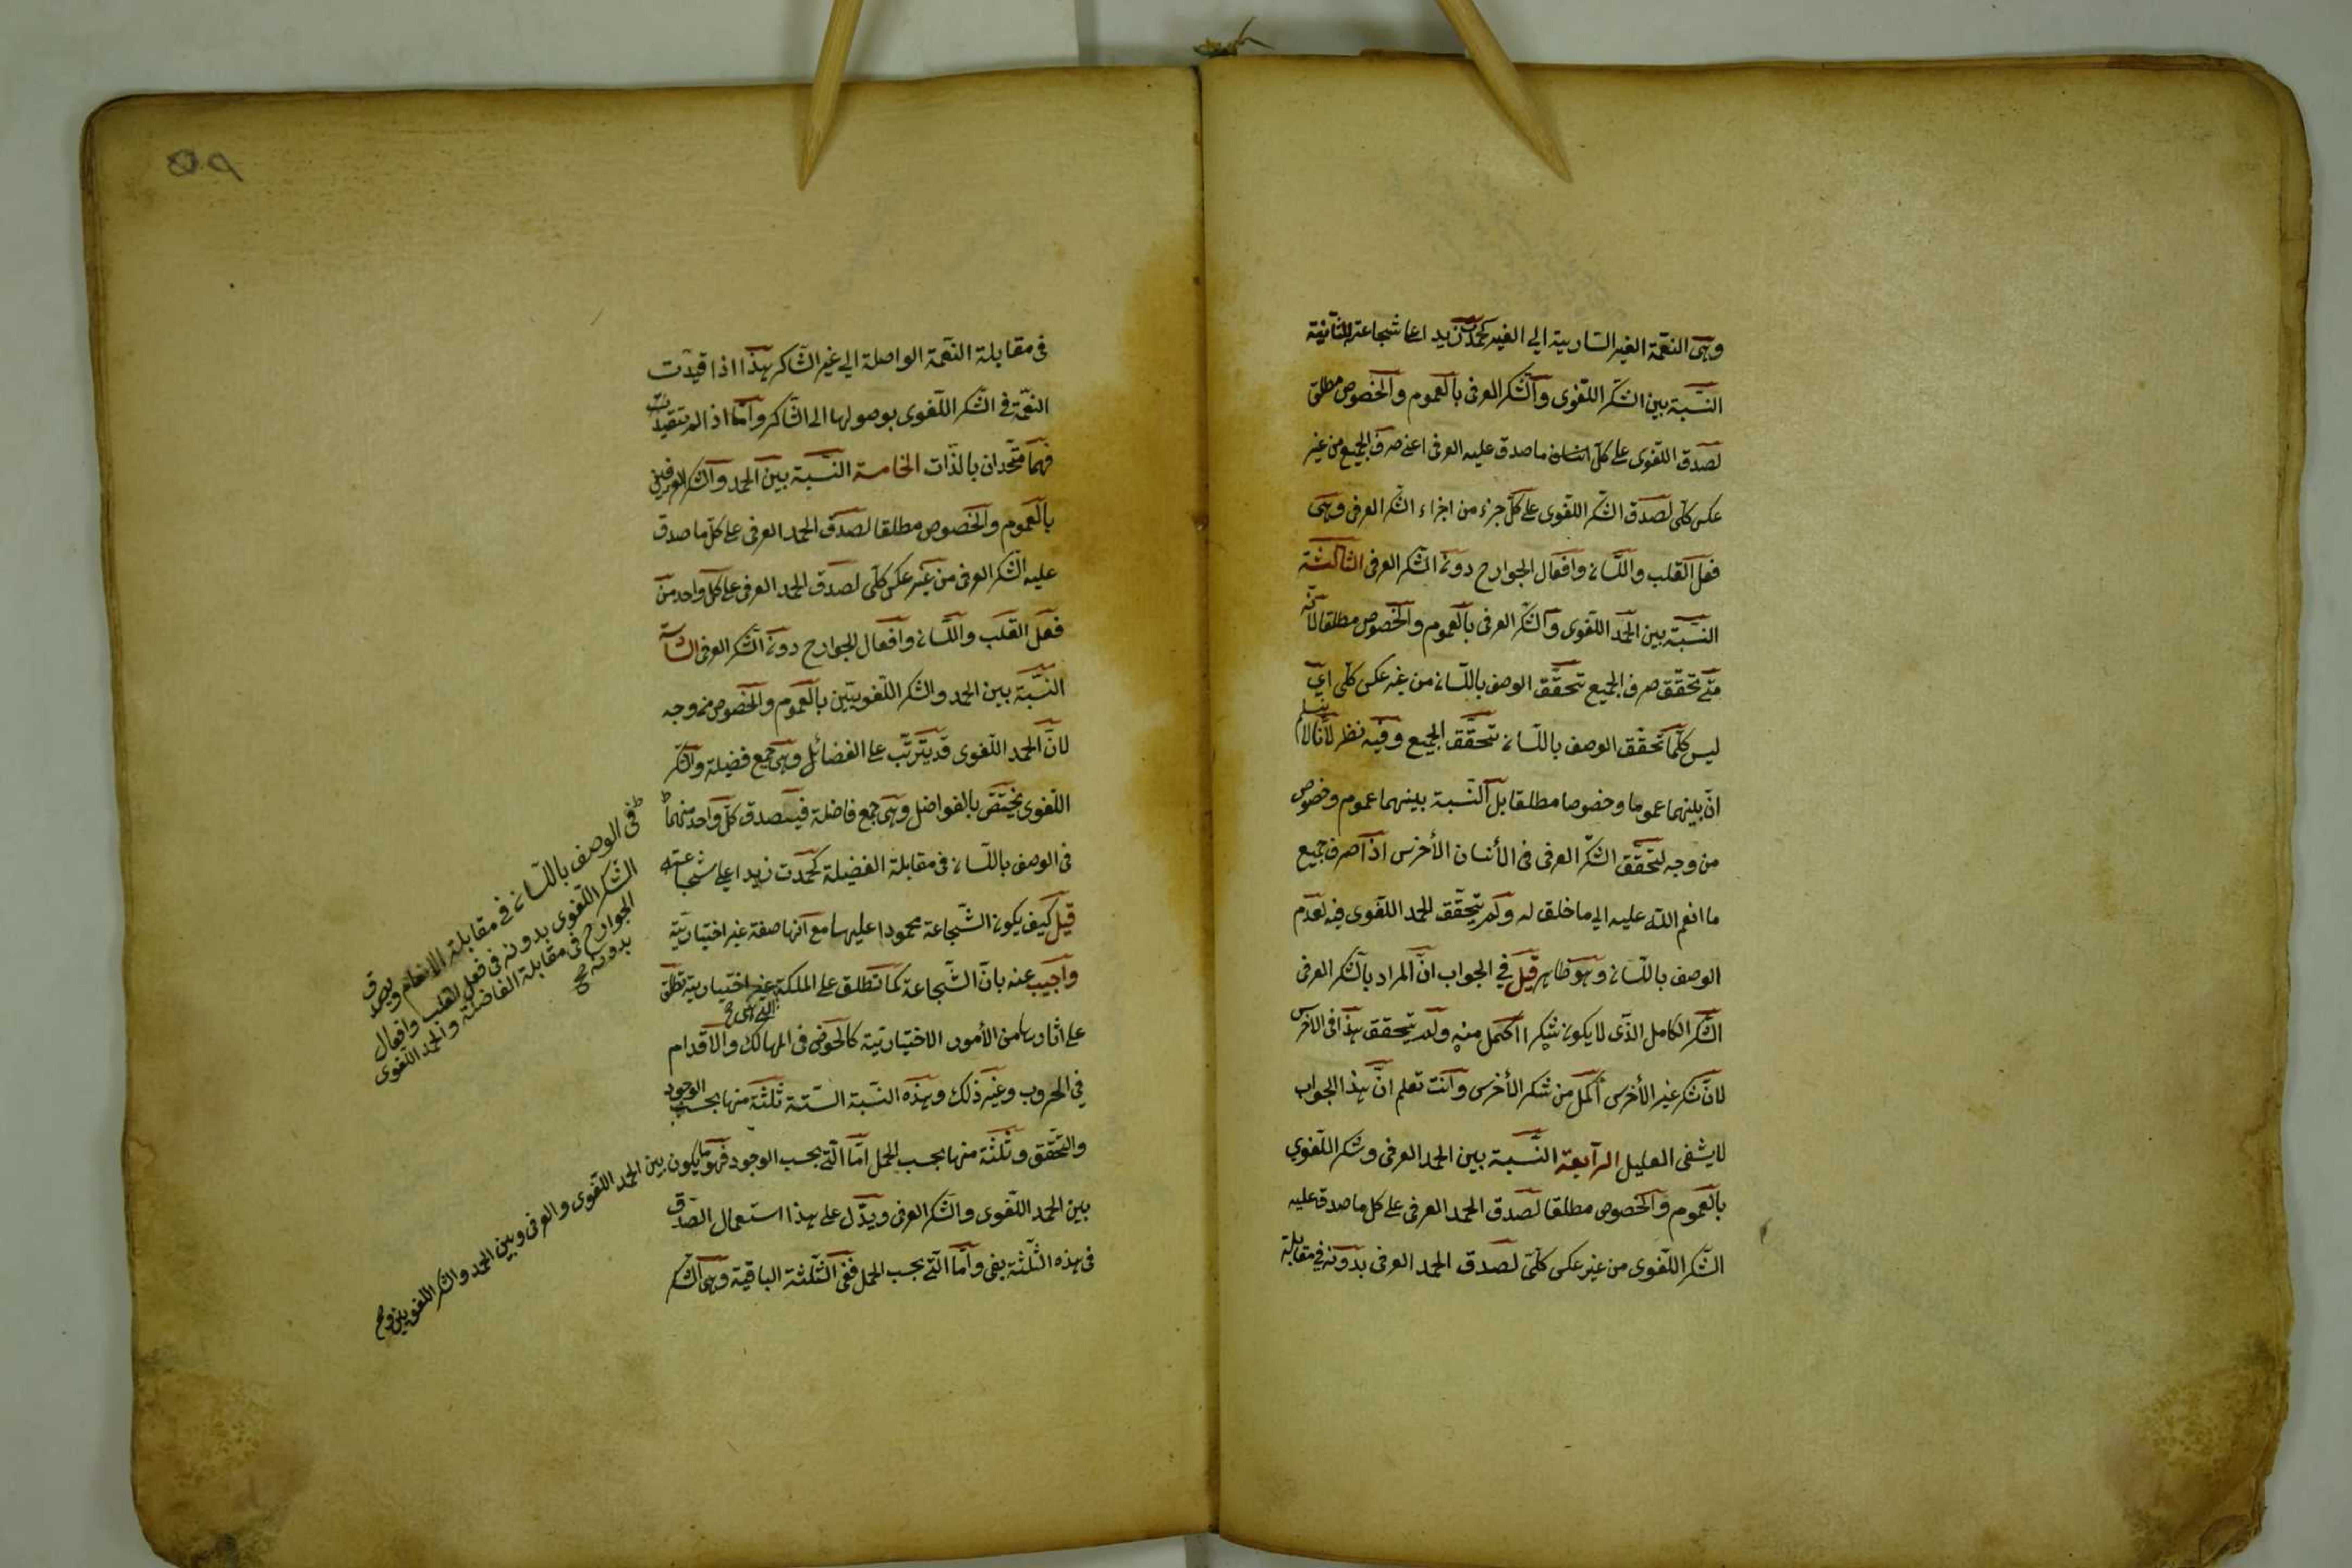 وهى النعمة الغير السارية الى الغير كحمدت زيدا على شجاعته الثانية
النسبة بين الشكر اللغوى والشكر العرفى بالعموم والخصوص مطلق
لصدق اللغوى على كل ما صدق عليه العرفى اعنى صرف الجميع من غير
عكس كلى لصدق الشكر اللغوى على كل جزء من اجزاء الشكر العرفى وهى
فعل القلب واللسان وافعال الجوارح دون الشكر العرفى الثالثة
النسبة بين الحمد اللغوى والشكر العرفى بالعموم والخصوص مطلقا لانه
متى تحقق صرف الجميع تحقق الوصف باللسان من غير عكس كلى اى
ليس كلما تحقق الوصف باللسان تحقق الجميع وفيه نظر لانا لا نسلم
ان بينهما عموما وخصوصا مطلقا بل النسبة بينهما عموم وخصوص
من وجه لتحقق الشكر العرفى فى الأنسان الأخرس اذا صرف جميع
ما انعم الله عليه الى ما خلق له ولم يتحقق الحمد اللغوى فيه لعدم
الوصف باللسان وهو ظاهر قيل فى الجواب ان المراد بالشكر العرفى
الشكر الكامل الذى لا يكون شكرا اكمل منه ولم يتحقق هذا فى الاخرس
لان شكر غير الأخرس أكمل من شكر الأخرس وانت تعلم ان هذا الجواب
لا يشفى العليل الرابعة النسبة بين الحمد العرفى وشكر اللغوي
بالعموم والخصوص مطلقا لصدق الحمد العرفى على كل ما صدق عليه
الشكر اللغوى من غير عكس كلى لصدق الحمد العرفى بدونه فى مقابلة
فى مقابلة النعمة الواصلة الى غير الشاكر هذا اذا قيدت
النعمة فى الشكر اللغوى بوصولها الى الشاكر واما اذا لم تتقيد
فهما متحدان بالذات الخامسة النسبة بين الحمد والشكر العرفيين
بالعموم والخصوص مطلقا لصدق الحمد العرفى على كل ما صدق
عليه الشكر العرفى من غير عكس كلى لصدق الحمد العرفى على كل واحد من
فعل القلب واللسان وافعال الجوارح دون الشكر العرفى السادسة
النسبة بين الحمد والشكر اللغويين بالعموم والخصوص من وجه
لان الحمد اللغوى قد يترتب على الفضائل وهى جمع فضيلة والشكر
اللغوى يختص بالفواضل وهى جمع فاضلة فيصدق كل واحد منهما
فى الوصف باللسان فى مقابلة الفضيلة كحمدت زيدا على شجاعته
قيل كيف يكون الشجاعة محمودا عليها مع انها صفة غير اختيارية
واجيب عنه بان الشجاعة كما تطلق على الملكة غير اختيارية تطلق
على اثارها من الأمور الاختيارية كالخوض فى المهالك والاقدام
فى الحروب وغير ذلك وهذه النسبة الستة ثلثة منها بحسب الوجود
والتحقق وثلثة منها بحسب الحمل اما التى بحسب الوجود فهو ما يكون بين الحمد اللغوى والعرفى وبين الحمد والشكر اللغويين
بين الحمد اللغوى والشكر العرفى ويدل على هذا استعمال الصدق
فى هذه الثلثة بفى واما التى بحسب الحمل ففى الثلثة الباقية وهى الشكر
فى الوصف باللسان فى مقابلة الانعام ويصدق
الشكر اللغوى بدونه فى فعل القلب وافعال
الجوارح فى مقابلة الفاضلة والحمد اللغوى
بدونه صح